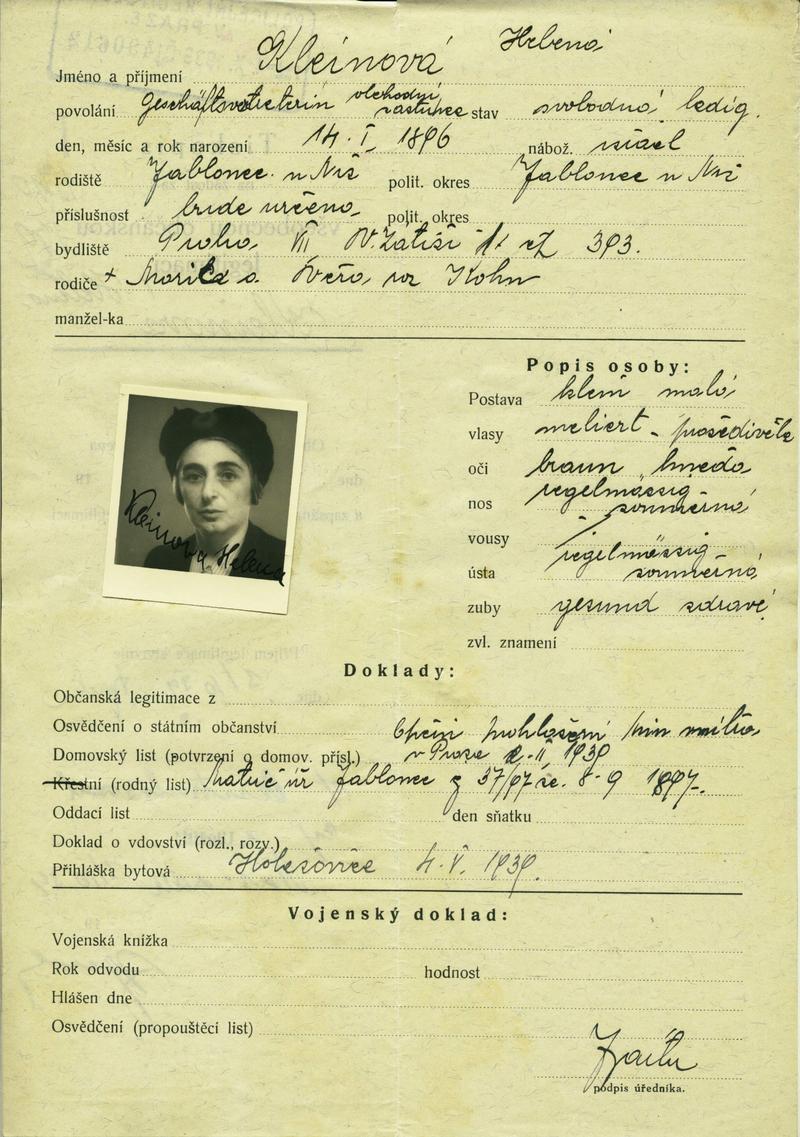 Jméno a příjmení Kleinová Helena
povolání Geschäftsvertreterin obchodní zástupce stav svobodná ledig.
den, měsíc a rok narození 14. I. 1896 nábož. israel
rodiště Jablonec n Nis polit. okres Jablonec n Nis
příslušnost bude určeno polit. okres
bydliště Praha VII V Zátiší čp 393.
rodiče + a roz Kohn
manžel-ka
Popis osoby:
Postava klein malá
vlasy meliert - prošedivělé
oči braun hnědé
nos regelmässig - souměrný
vousy
ústa regelmässig - souměrná
zuby gesund zdravé
zvl. znamení
Kleinova Helena
Doklady:
Občanská legitimace z
Osvědčení o státním občanství
Domovský list (potvrzení o domov. přísl.) v Praze II. 1939
Křestní (rodný list) Matrič úř Jablonec z 8-9 1897.
Oddací list den sňatku
Doklad o vdovství (rozl., rozv.)
Přihláška bytová Holešovice 4. V. 1939.
Vojenský doklad:
Vojenská knížka
Rok odvodu hodnost
Hlášen dne
Osvědčení (propouštěcí list)
podpis úředníka.